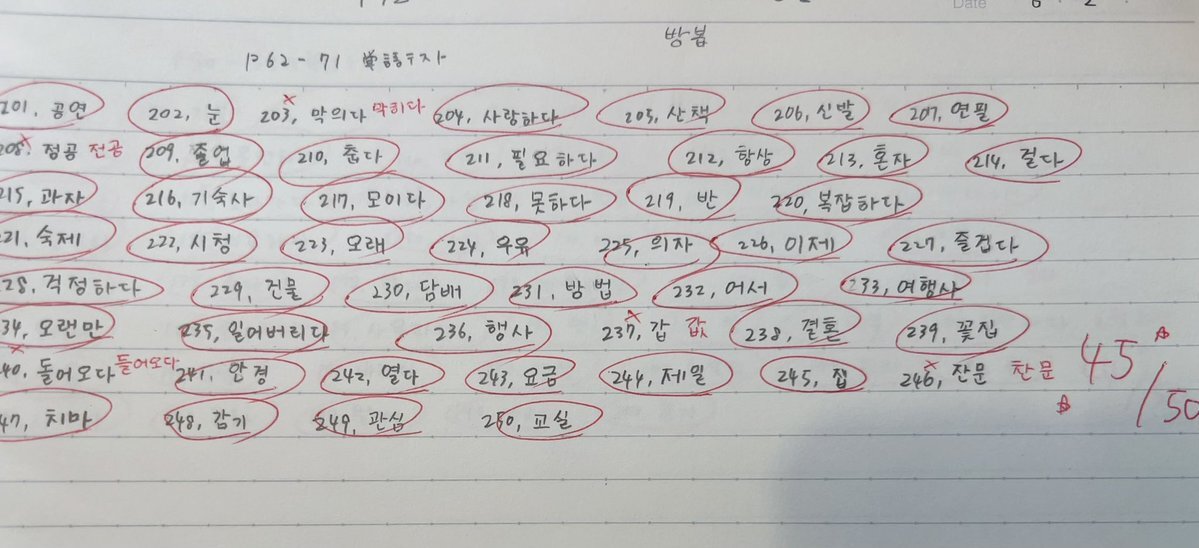 Date
방봄
P62-71 単語テスト
201, 공연 202, 눈 203, 막의다 막히다 204, 사랑하다 205, 산책 206, 신발 207, 연필
208, 점공 전공 209, 졸업 210, 춥다 211, 필요하다 212, 항상 213, 혼자 214, 걸다
215, 과자 216, 기숙사 217, 모이다 218, 못하다 219, 반 220, 복잡하다
21, 숙제 222, 시청 223, 오래 224, 우유 225, 의자 226, 이제 227, 즐겁다
28, 걱정하다 229, 건물 230, 담배 231, 방법 232, 어서 233, 여행사
34, 오랜만 235, 잃어버리다 236, 행사 237, 갑 값 238, 결혼 239, 꽃집
40, 돌어오다 들어오다 241, 안경 242, 열다 243, 요금 244, 제일 245, 집 246, 잔문 찬문 45/50
47, 치마 248, 감기 249, 관심 250, 교실